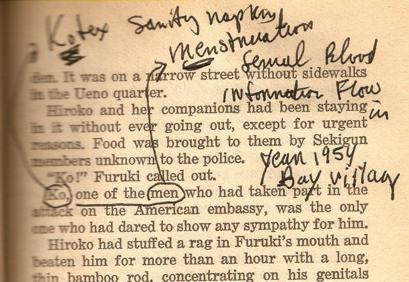 Kotex Sanity napkins
Menstruation
Sexual Blood
Information Flow
in
year 1954
Bay village
den. It was on a narrow street without sidewalks
in the Ueno quarter.
Hiroko and her companions had been staying
in it without ever going out, except for urgent
reasons. Food was brought to them by Sekigun
members unknown to the police.
"Ko!" Furuki called out.
Ko, one of the men who had taken part in the
attack on the American embassy, was the only
one who had dared to show any sympathy for him.
Hiroko had stuffed a rag in Furuki's mouth and
beaten him for more than an hour with a long,
thin bamboo rod, concentrating on his genitals